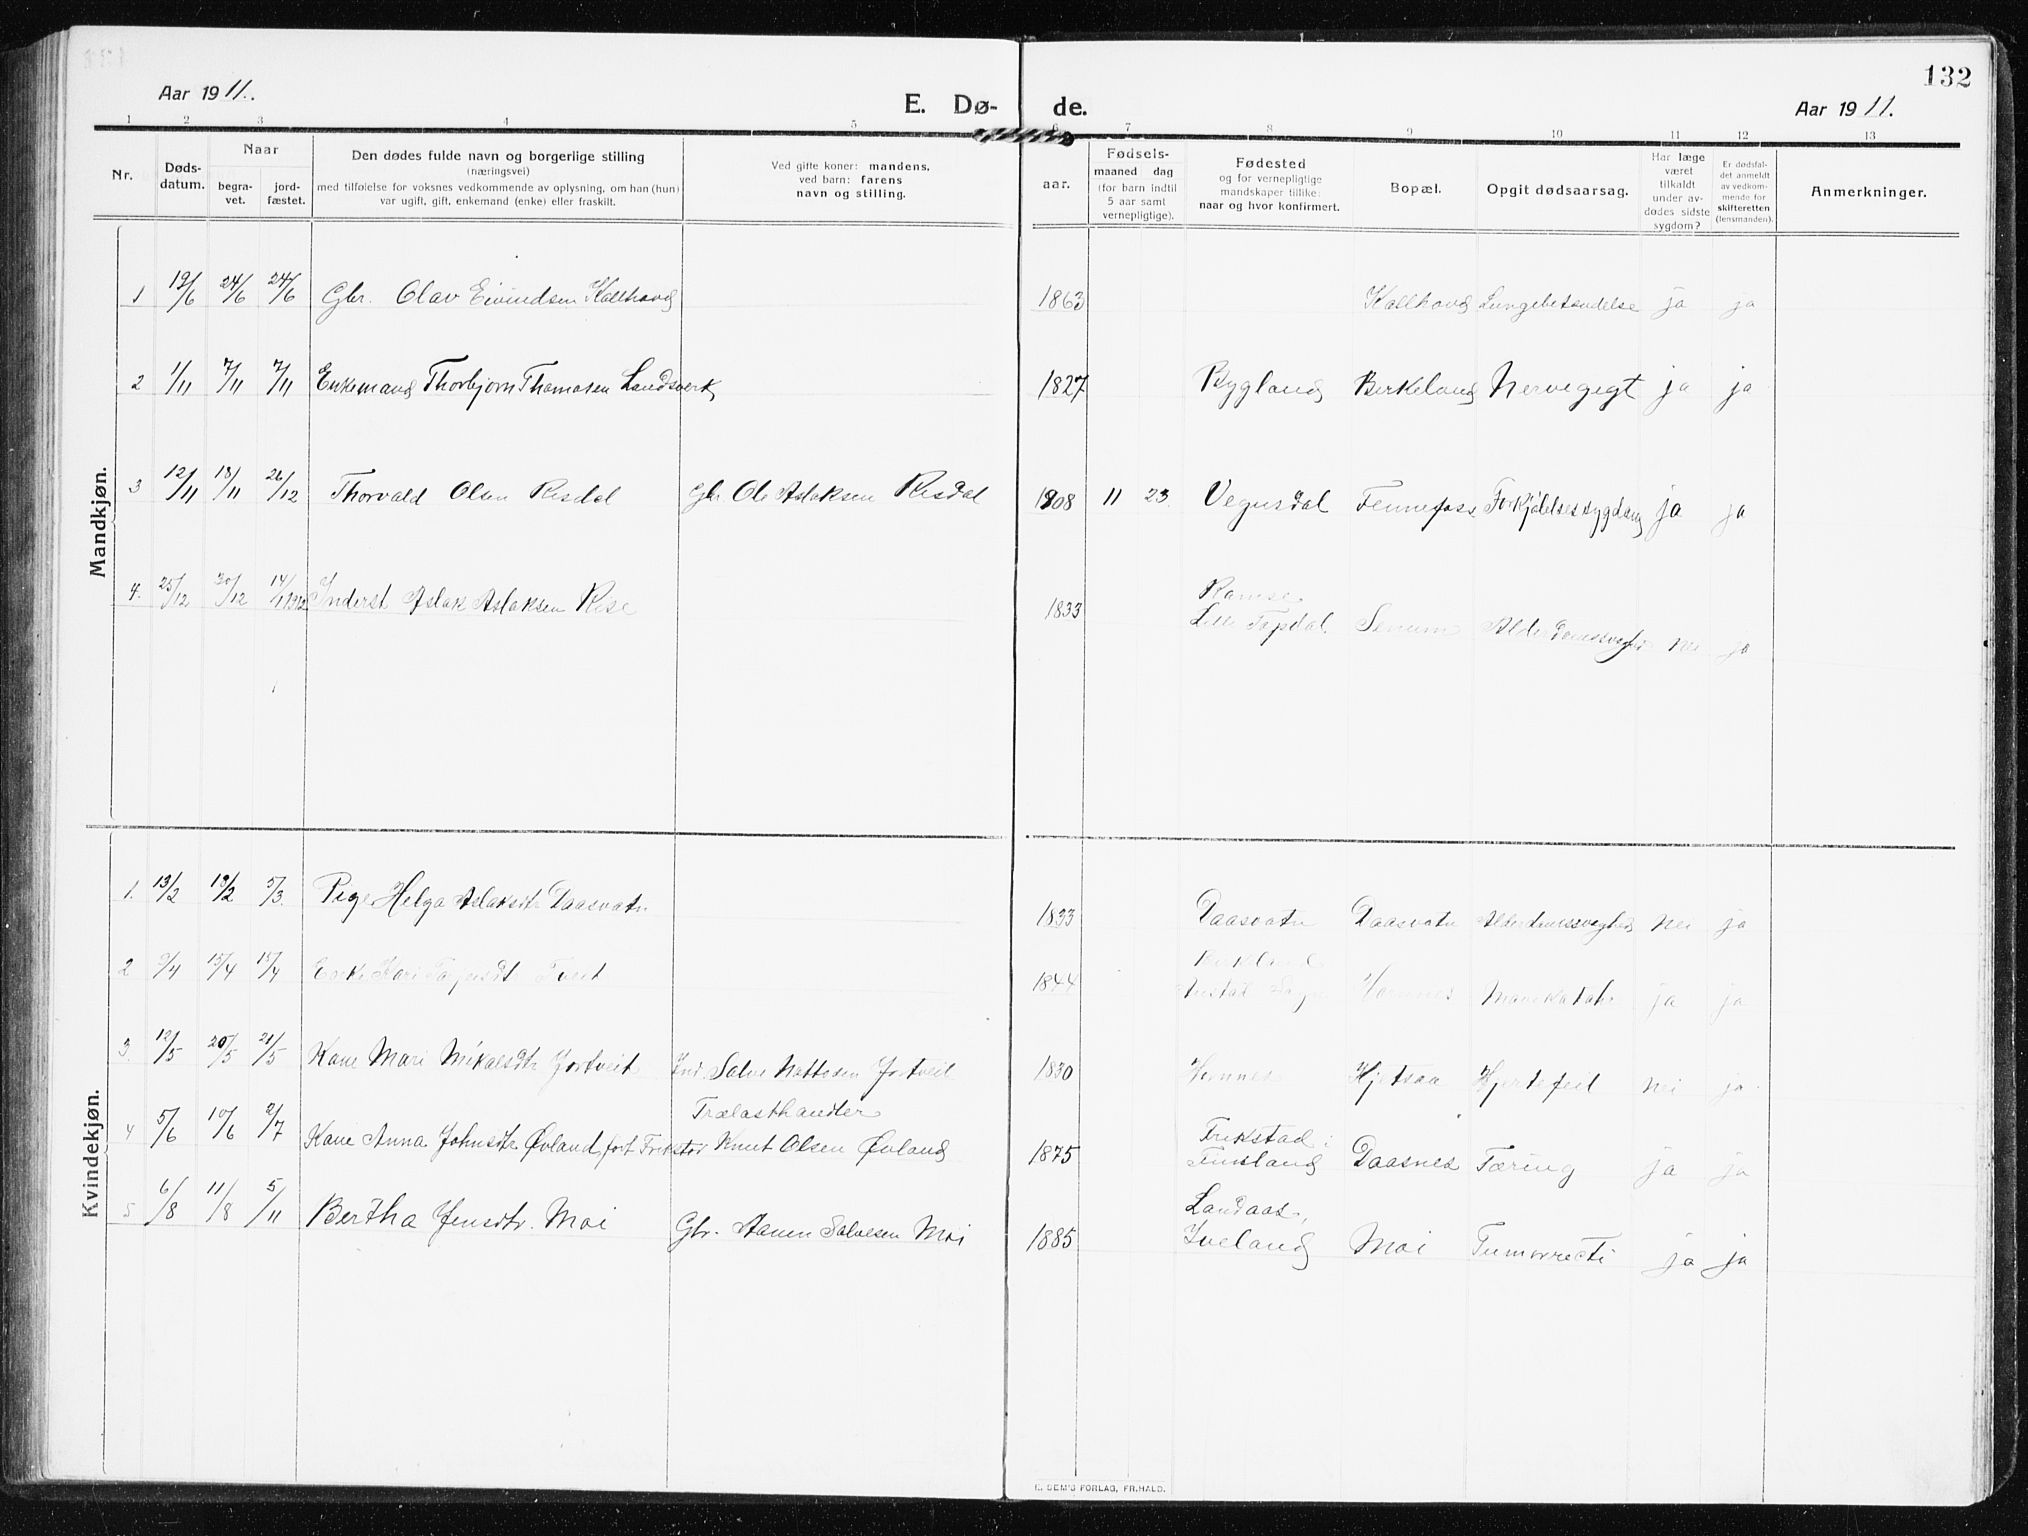 132
Aar 1911.
E. Dø- de.
Aar 1911.
1 2 3 4 5 6 7 8 9 10 11 12 13
Nr.
Døds-
datum.
Naar
begra-
vet.
jord-
fæstet.
Den dødes fulde navn og borgerlige stilling
(næringsvei)
med tilføielse for voksnes vedkommende av oplysning, om han (hun)
var ugift, gift, enkemand (enke) eller fraskilt.
Ved gifte koner: mandens.
ved barn: farens
navn og stilling.
aar.
Fødsels-
maaned dag
(for barn indtil
5 aar samt
vernepligtige).
Fødested
og for vernepligtige
mandskaper tillike:
naar og hvor konfirmert.
Bopæl.
Opgit dødsaarsag.
Har læge
været
tilkaldt
under av-
dødes sidste
sygdom?
Er dødsfal-
det anmeldt
av vedkom-
mende for
skifteretten
(lensmanden).
Anmerkninger.
Mandkjøn.
1 19/6 24/6 24/6 Gbr. Olav Eivindsen Kallhovd 1863 Kallhovd Lungebetændelse ja ja
2 1/11 7/11 7/11 Enkemand Thorbjørn Thomasen Landsverk 1827 Bygland Birkeland Nervegigt ja ja
3 12/11 18/11 26/12 Thorvald Olsen Risdal Gbr. Ole Aslaksen Risdal 1908 11 23. Vegusdal Fennefoss Forkjølelsessygdom ja ja
4. 25/12 30/12 14/1 1912 Inderst Aslak Aslaksen Rise 1833
Lille Topdal. Senum Alderdomssvaghed nei ja
Kvindekjøn.
1. 13/2 19/2 5/3. Pige Helga Aslaksdtr Daasvatn 1833 Daasvatn Daasvatn Alderdomssvaghed nei ja
2 9/4 15/4 15/4 Enke Kari Tarjersdt Tveit 1844 ja ja
3. 12/5 20/5 21/5 Kone Mari Mikalsdtr Jortveit Ind. Salve Jortveit 1830 Hornnes Kjetsaa Hjertefeil nei ja
Trælasthandler
4 5/6 10/6 2/7 Kone Anna Johnsdtr Øvland, født Frikstad Knut Olsen Øvland 1875 Frikstad i
Finsland Daasnes Tæring ja ja
5 6/8 11/8 5/11 Bertha Jensdtr. Moi Gbr. Aanen Salvesen Moi 1885 Landaas,
Iveland Moi Tumor recti ja ja
E. SEM'S FORLAG, FR.HALD.